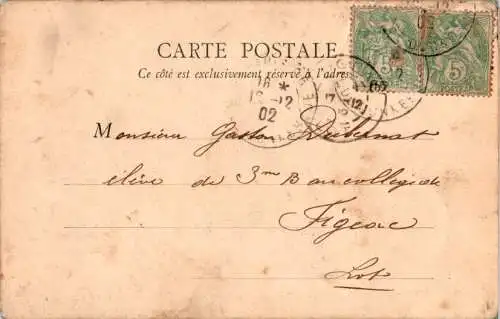 CARTE POSTALE
Ce côté est exclusivement réservé à l'adresse
5 5
16 *
12
02
Monsieur Gaston
élève de 3me B au collège de
Figeac
Lot